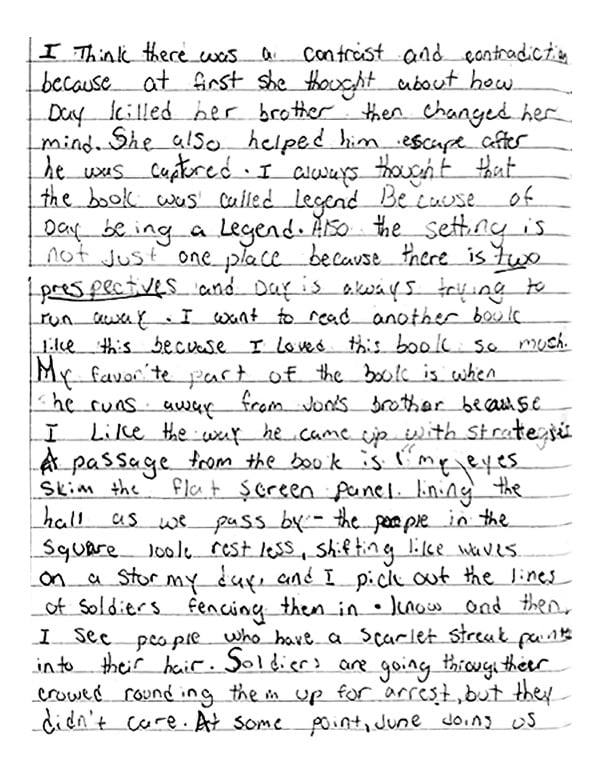 I Think there was a contrast and contradiction
because at first she thought about how
Day killed her brother then changed her
mind. She also helped him escape after
he was captured. I always thought that
the book was called Legend Because of
Day being a Legend. Also the setting is
not just one place because there is two
prespectives and Day is always trying to
run away. I want to read another book
like this becuase I Loved this book so much.
My favorite part of the book is when
he runs away from Jon's brother because
I Like the way he came up with strategies
A passage from the book is "my eyes
skim the flat screen panel lining the
hall as we pass by - the people in the
square look restless, shifting like waves
on a stormy day, and I pick out the lines
of soldiers fencing them in. know and then,
I see people who have a scarlet streak painte
into their hair. Soldiers are going through their
crowed rounding them up for arrest, but they
didn't care. At some point, June joins us